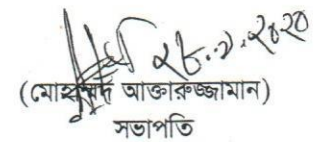 ২৮.৯.২০২০
(মোহাম্মদ আক্তারুজ্জামান)
সভাপতি